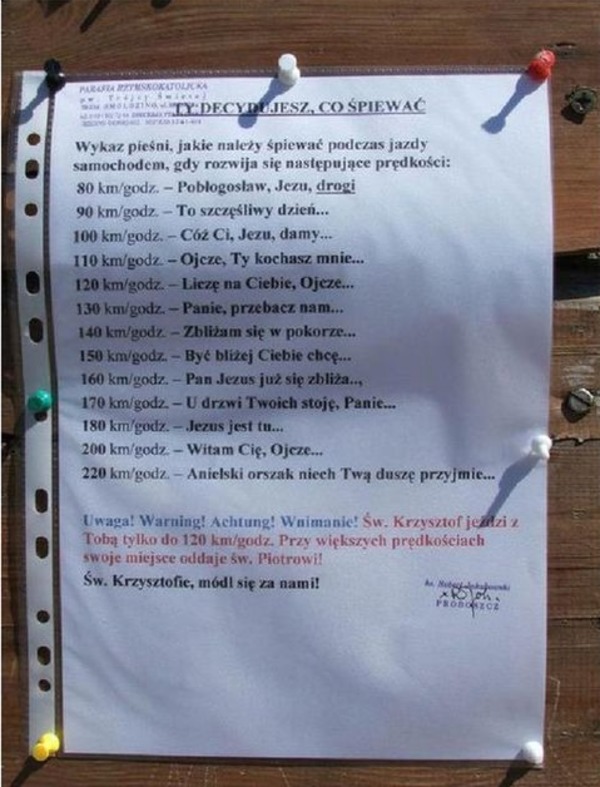 PARAFIA RZYMSKOKATOLICKA
TY DECYDUJESZ, CO ŚPIEWAĆ
Wykaz pieśni, jakie należy śpiewać podczas jazdy
samochodem, gdy rozwija się następujące prędkości:
80 km/godz. – Pobłogosław, Jezu, drogi
90 km/godz. – To szczęśliwy dzień...
100 km/godz. – Cóż Ci, Jezu, damy...
110 km/godz. – Ojcze, Ty kochasz mnie...
120 km/godz. – Liczę na Ciebie, Ojcze...
130 km/godz. – Panie, przebacz nam...
140 km/godz. – Zbliżam się w pokorze...
150 km/godz. – Być bliżej Ciebie chcę...
160 km/godz. – Pan Jezus już się zbliża..,
170 km/godz. – U drzwi Twoich stoję, Panie...
180 km/godz. – Jezus jest tu...
200 km/godz. – Witam Cię, Ojcze...
220 km/godz. – Anielski orszak niech Twą duszę przyjmie...
Uwaga! Warning! Achtung! Wnimanie! Św. Krzysztof jeździ z
Tobą tylko do 120 km/godz. Przy większych prędkościach
swoje miejsce oddaje św. Piotrowi!
Św. Krzysztofie, módl się za nami!
PROBOSZCZ